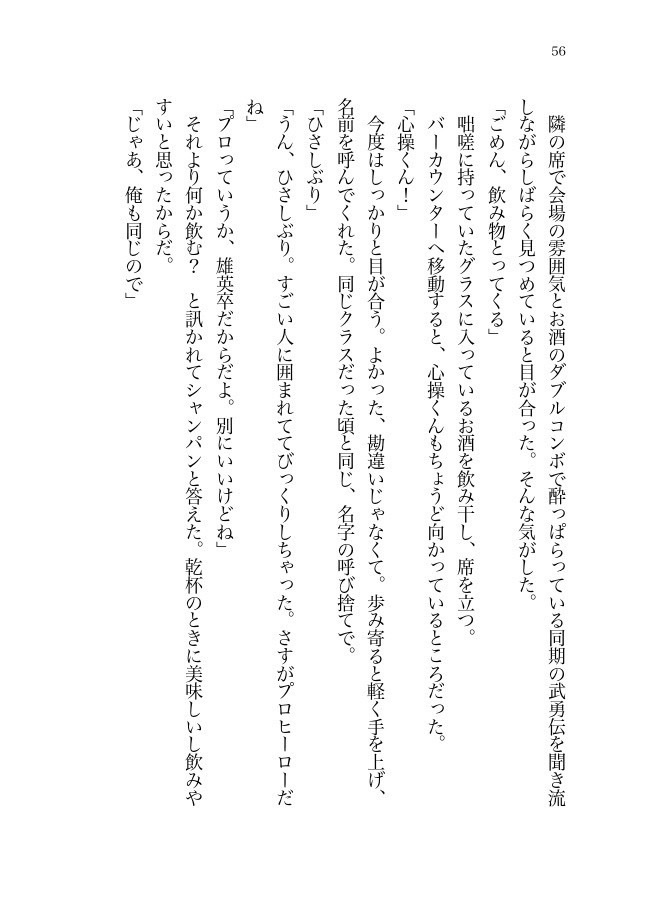 56
　隣の席で会場の雰囲気とお酒のダブルコンボで酔っぱらっている同期の武勇伝を聞き流
しながらしばらく見つめていると目が合った。そんな気がした。
「ごめん、飲み物とってくる」
　咄嗟に持っていたグラスに入っているお酒を飲み干し、席を立つ。
　バーカウンターへ移動すると、心操くんもちょうど向かっているところだった。
「心操くん！」
　今度はしっかりと目が合う。よかった、勘違いじゃなくて。歩み寄ると軽く手を上げ、
名前を呼んでくれた。同じクラスだった頃と同じ、名字の呼び捨てで。
「ひさしぶり」
「うん、ひさしぶり。すごい人に囲まれててびっくりしちゃった。さすがプロヒーローだ
ね」
「プロっていうか、雄英卒だからだよ。別にいいけどね」
　それより何か飲む？　と訊かれてシャンパンと答えた。乾杯のときに美味しいし飲みや
すいと思ったからだ。
「じゃあ、俺も同じので」